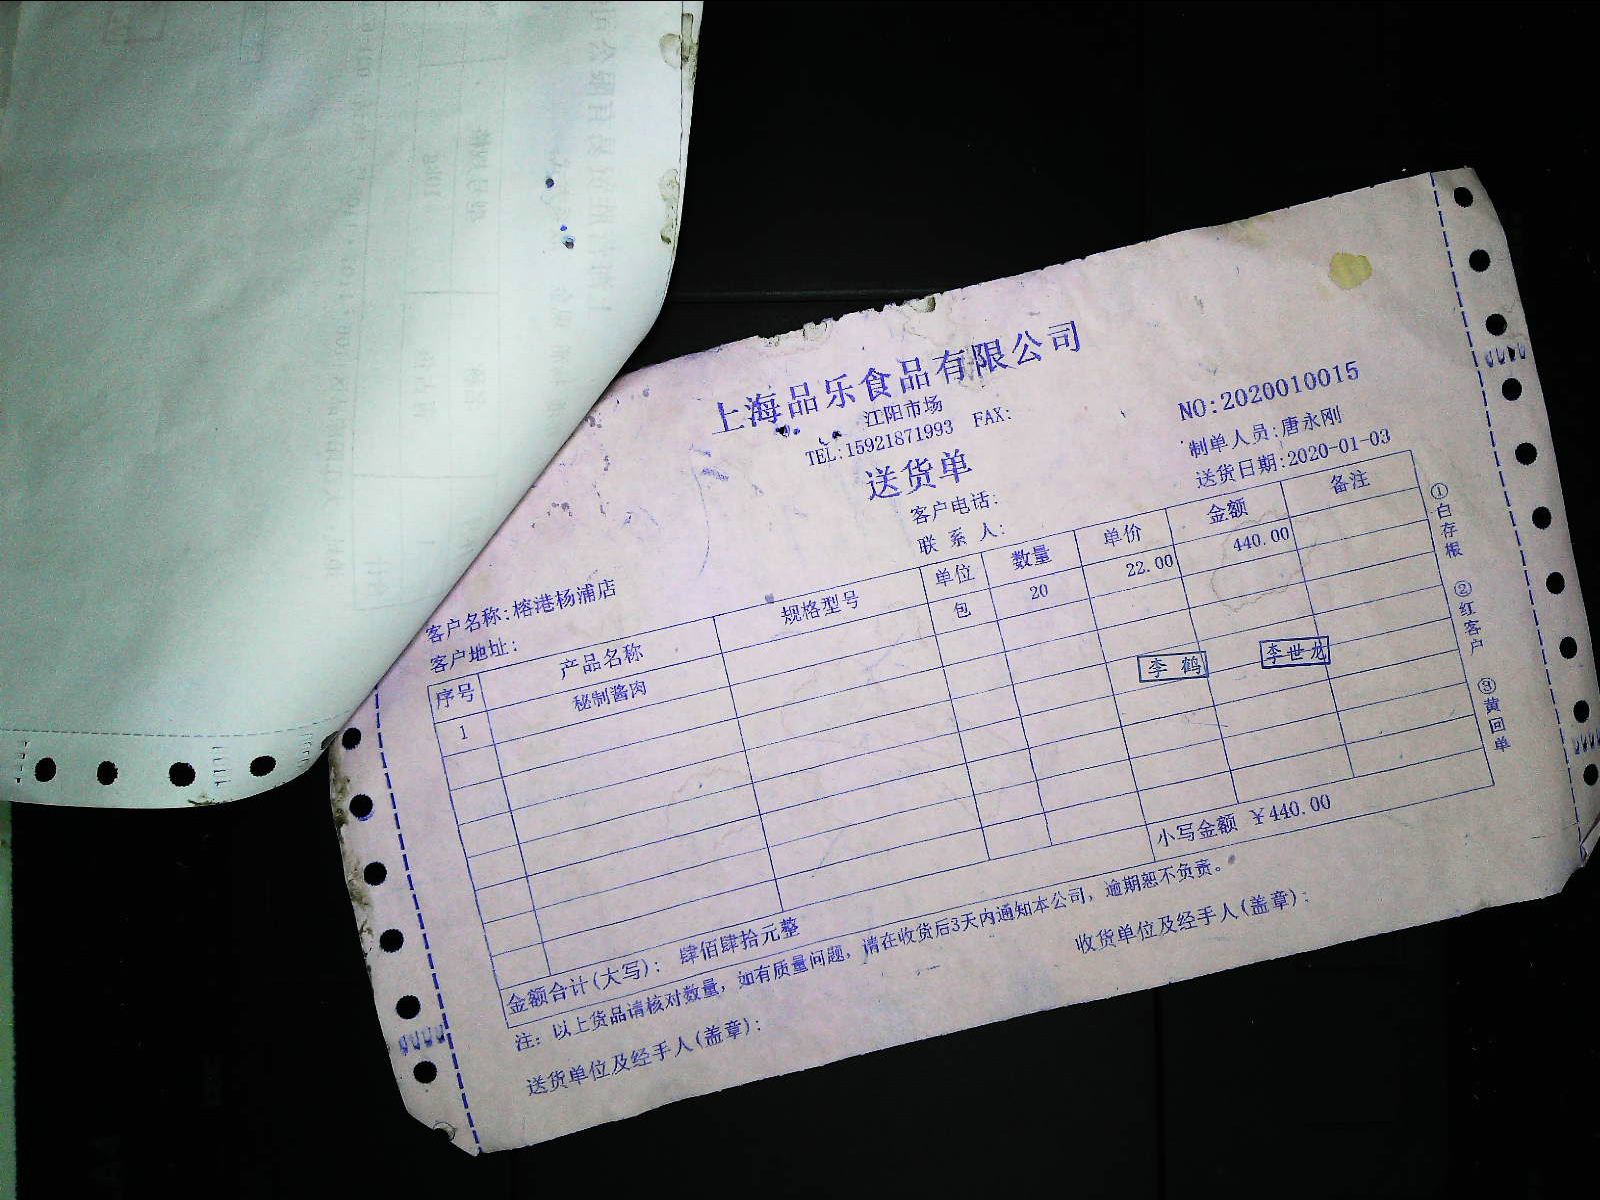 上海品乐食品有限公司
江阳市场
TEL:15921871993 FAX:
NO:2020010015
制单人员:唐永刚
送货单
送货日期:2020-01-03
客户电话:
联系人:
客户名称:榕港杨浦店
客户地址:
序号 产品名称 规格型号 单位 数量 单价 金额 备注
1 秘制酱肉 包 20 22.00 440.00
李鹤 李世龙
小写金额 ￥440.00
金额合计(大写): 肆佰肆拾元整
注: 以上货品请核对数量, 如有质量问题, 请在收货后3天内通知本公司, 逾期恕不负责。
送货单位及经手人(盖章):
收货单位及经手人(盖章):
①白存根 ②红客户 ③黄回单